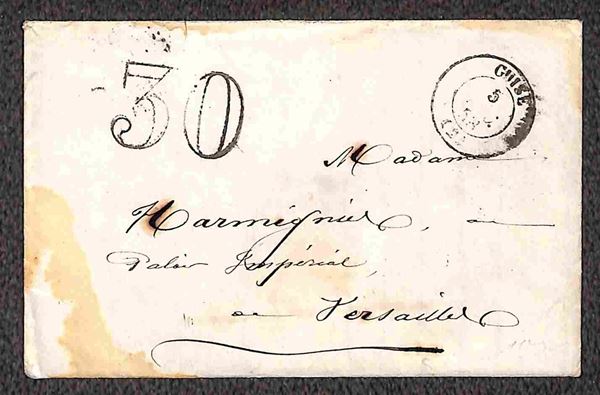 30
GUISE
5
Madame
Harmignies, au
Palais Impérial,
à Versailles